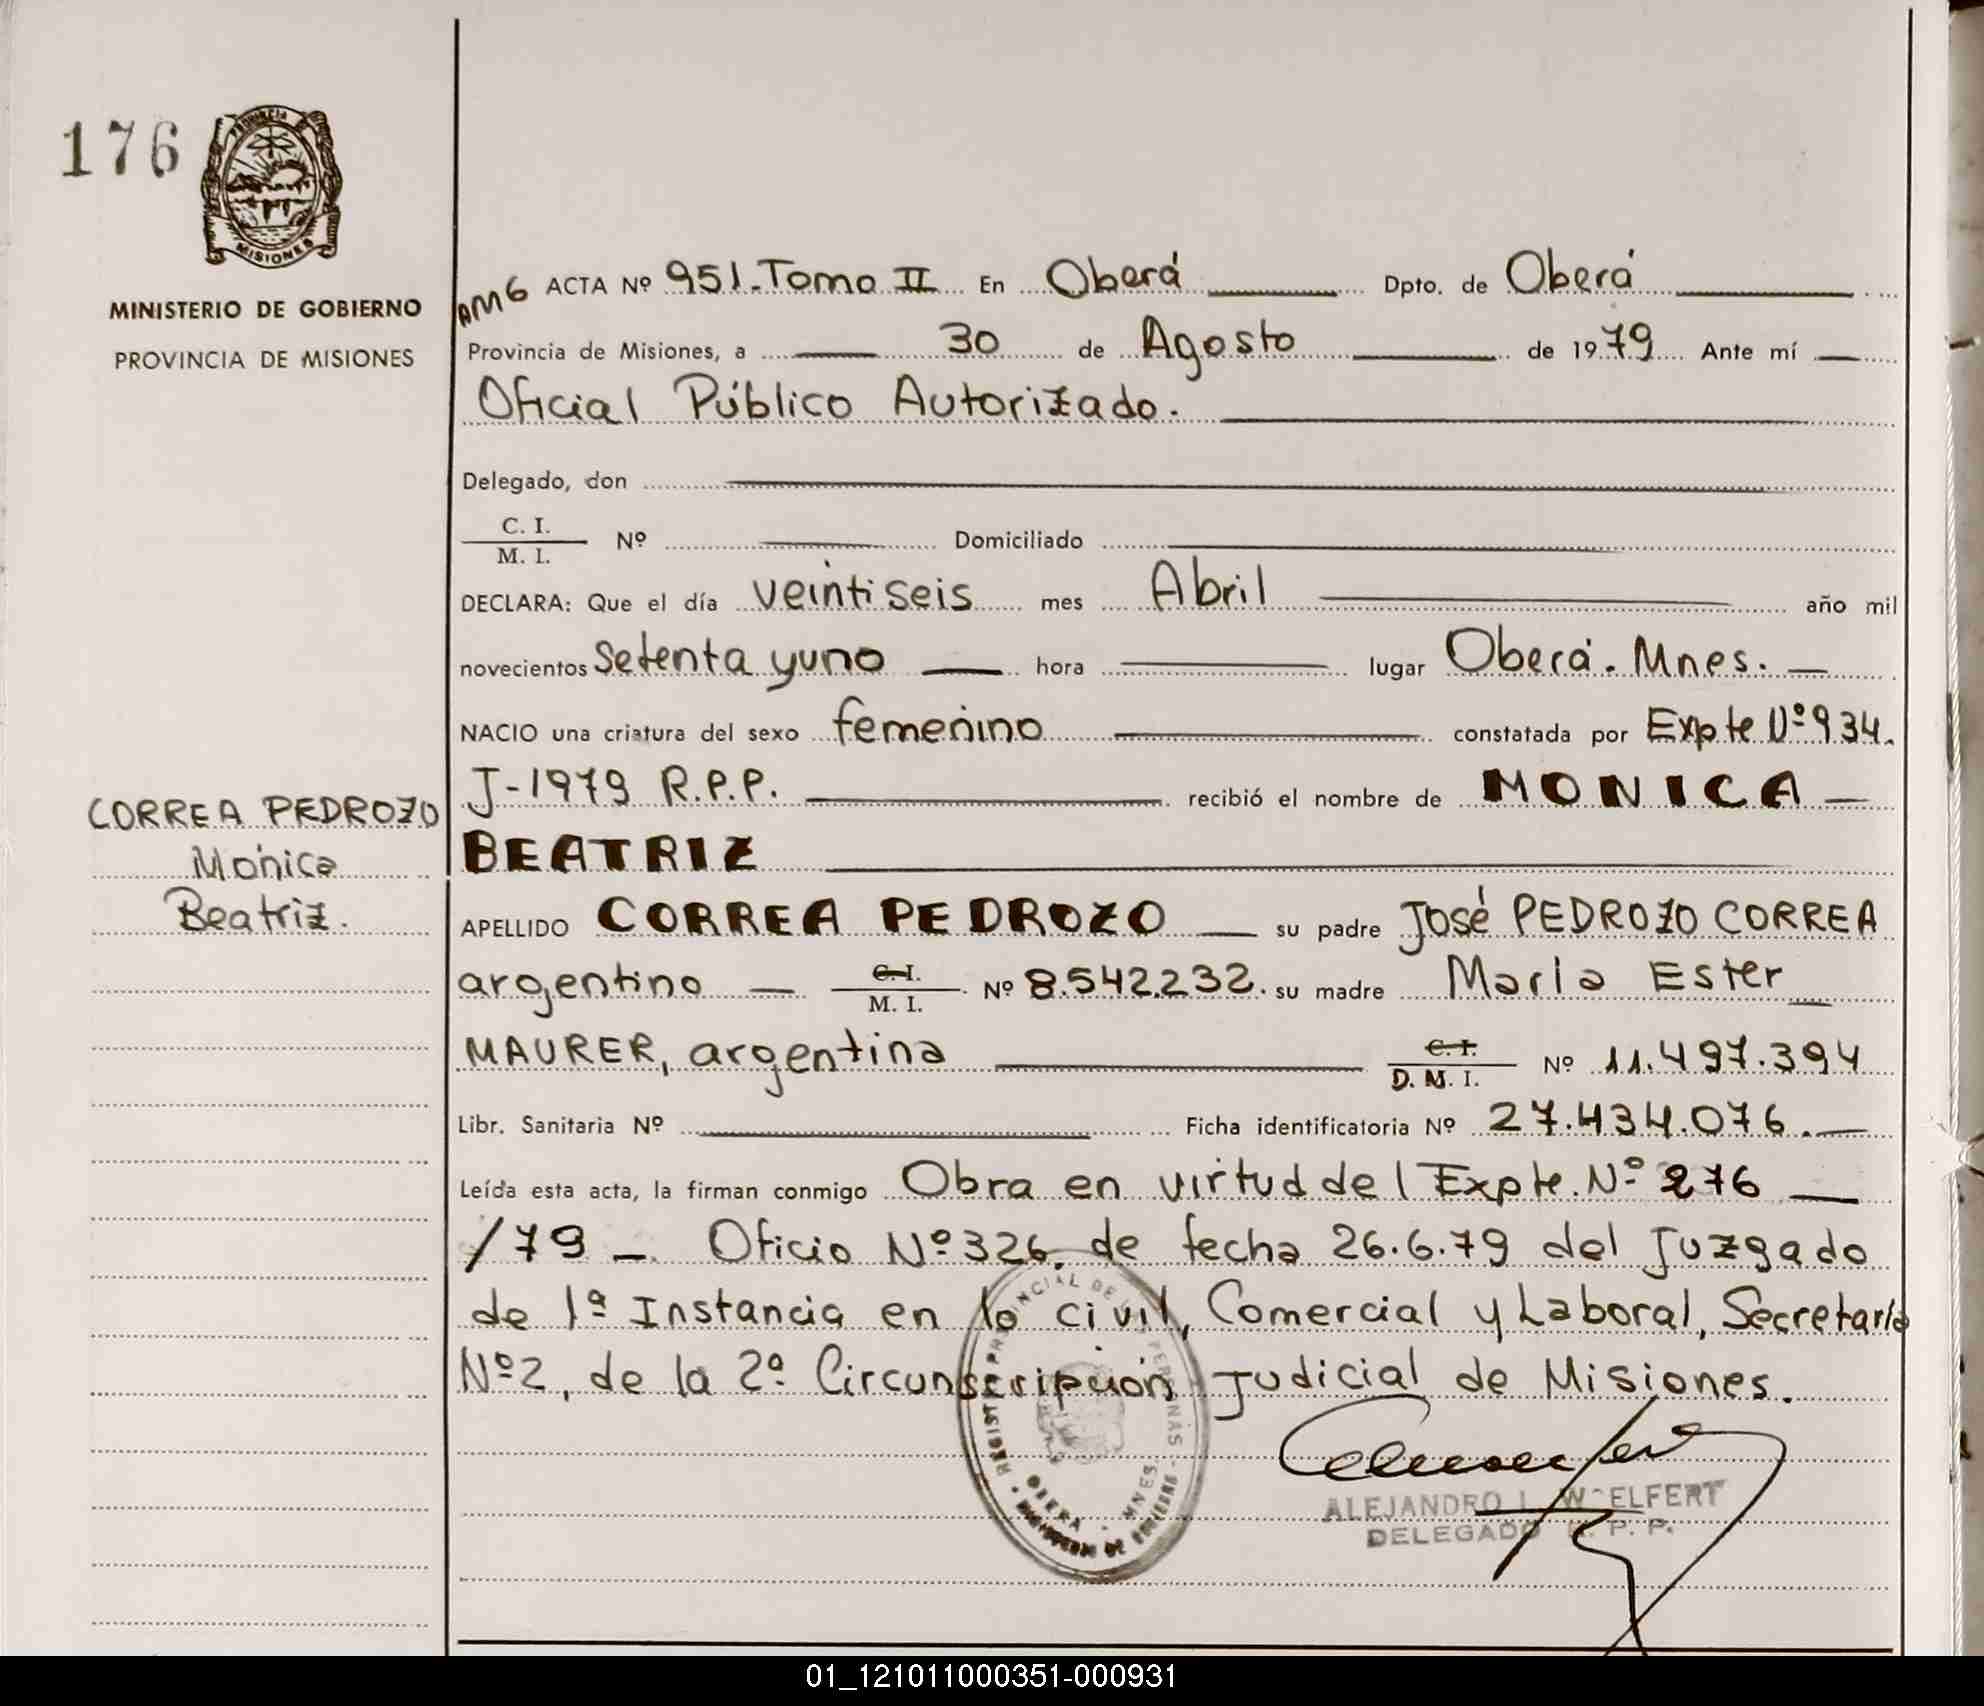 176
PROVINCIA
MISIONES
MINISTERIO DE GOBIERNO
PROVINCIA DE MISIONES
AM6 ACTA Nº 951. Tomo II En Oberá Dpto. de Oberá
Provincia de Misiones, a 30 de Agosto de 1979 Ante mí
Oficial Público Autorizado.
Delegado, don
C. I.
M. I. Nº Domiciliado
DECLARA: Que el día veintiseis mes Abril año mil
novecientos setenta y uno hora lugar Oberá. Mnes.
NACIO una criatura del sexo femenino constatada por Expte Nº 934.
J-1979 R.P.P. recibió el nombre de MONICA
BEATRIZ
CORREA PEDROZO
Mónica
Beatriz.
APELLIDO CORREA PEDROZO su padre José PEDROZO CORREA
argentino C. I.
M. I. Nº 8.542.232. su madre María Ester
MAURER, argentina C. I.
D. M. I. Nº 11.497.394
Libr. Sanitaria Nº Ficha identificatoria Nº 27.434.076.
Leída esta acta, la firman conmigo Obra en virtud del Expte. Nº 276
/79 - Oficio Nº 326, de fecha 26.6.79 del Juzgado
de 1ª Instancia en lo civil, Comercial y Laboral, Secretaría
Nº 2, de la 2ª Circunscripción Judicial de Misiones.
ALEJANDRO L. WOELFERT
DELEGADO R. P. P.
01_121011000351-000931